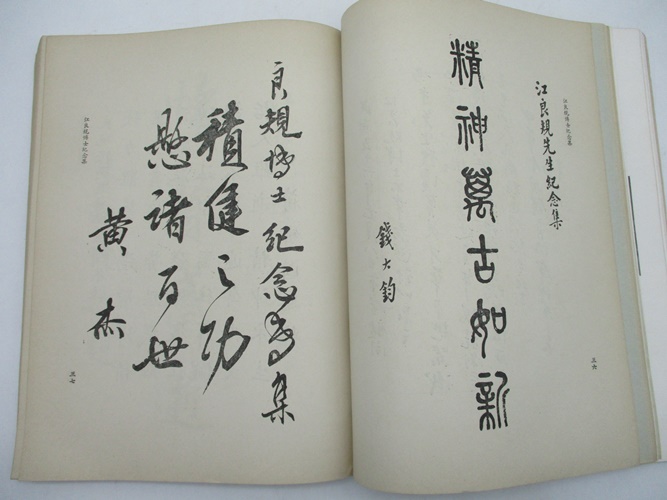 江良規博士紀念集
三六
江良規先生紀念集
精神萬古如新
錢大鈞
良規博士紀念專集
積健之功
懸諸百世
黃杰
江良規博士紀念集
三七